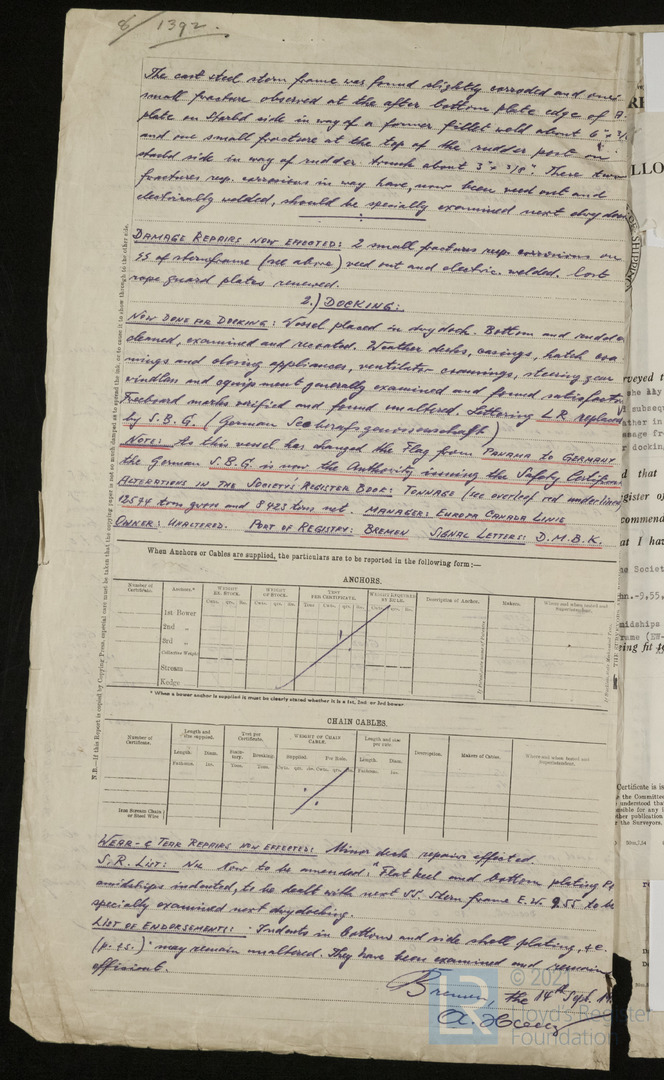 8/1392.
The cast steel stern frame was found slightly corroded and one
small fracture observed at the after bottom plate edge of A-
plate on Starbd side in way of a former fillet weld about 6" x
and one small fracture at the top of the rudder post on
starbd side in way of rudder trunk about 3" x 3/8". These two
fractures resp. corrosions in way have now been veed out and
electrically welded, should be specially examined next dry dock
DAMAGE REPAIRS NOW EFFECTED: 2 small fractures resp. corrosions on
SS of sternframe (see above) veed out and electric. welded. Lost
rope guard plates renewed.
2.) DOCKING:
NOW DONE FOR DOCKING: Vessel placed in drydock. Bottom and rudder
cleaned, examined and recoated. Weather decks, casings, hatch coa-
mings and closing appliances, ventilator coamings, steering gear
windlass and equipment generally examined and found satisfactory
Freeboard marks verified and found unaltered. Lettering L.R. replaced
by S.B.G. (German Seeberufsgenossenschaft)
NOTE: As this vessel has changed the Flag from PANAMA to GERMANY
the German S.B.G. is now the Authority issuing the Safety Certificat
ALTERATIONS IN THE SOCIETY'S REGISTER BOOK: TONNAGE (see overleaf red underlined
12574 tons gross and 8923 tons net. MANAGER: EUROPA CANADA LINIE
OWNER: UNALTERED. PORT OF REGISTRY: BREMEN SIGNAL LETTERS: D.M.B.K.
When Anchors or Cables are supplied, the particulars are to be reported in the following form:—
ANCHORS.
Number of Certificate. Anchors.* WEIGHT EX. STOCK. WEIGHT OF STOCK. TEST PER CERTIFICATE. WEIGHT REQUIRED BY RULE. Description of Anchor. Makers. Where and when tested and Superintendent.
Cwts. qrs. lbs. Cwts. qrs. lbs. Tons Cwts. qrs. lbs. Cwts. qrs. lbs.
1st Bower
2nd „
3rd „
Collective Weight
Stream
Kedge
* When a bower anchor is supplied it must be clearly stated whether it is a 1st, 2nd or 3rd bower.
CHAIN CABLES.
Number of Certificate. Length and size supplied. Test per Certificate. WEIGHT OF CHAIN CABLE. Length and size per rule. Description. Makers of Cables. Where and when tested and Superintendent.
Length. Diam. Statutory. Breaking. Supplied. Per Rule. Length. Diam.
Fathoms. Ins. Tons. Tons. Cwts. qrs. lbs. Cwts. qrs. lbs. Fathoms. Ins.
Iron Stream Chain or Steel Wire
WEAR & TEAR REPAIRS NOW EFFECTED: Minor deck repairs effected.
S.R. LIST: Now to be amended: "Flat keel and bottom plating
amidships indented, to be dealt with next SS. Stern frame E.W. 9.55 to be
specially examined next drydocking.
LIST OF ENDORSEMENTS: "Indents in bottom and side shell plating, &c.
(p. &s.)" may remain unaltered. They have been examined and remain
efficient.
Bremen, the 14th Sept.
N.B.—If this Report is copied by Copying Press, especial care must be taken that the copying paper is not so much damped as to spread the ink, or to cause it to show through to the other side.
© 2021
LR
Lloyd's Register
Foundation